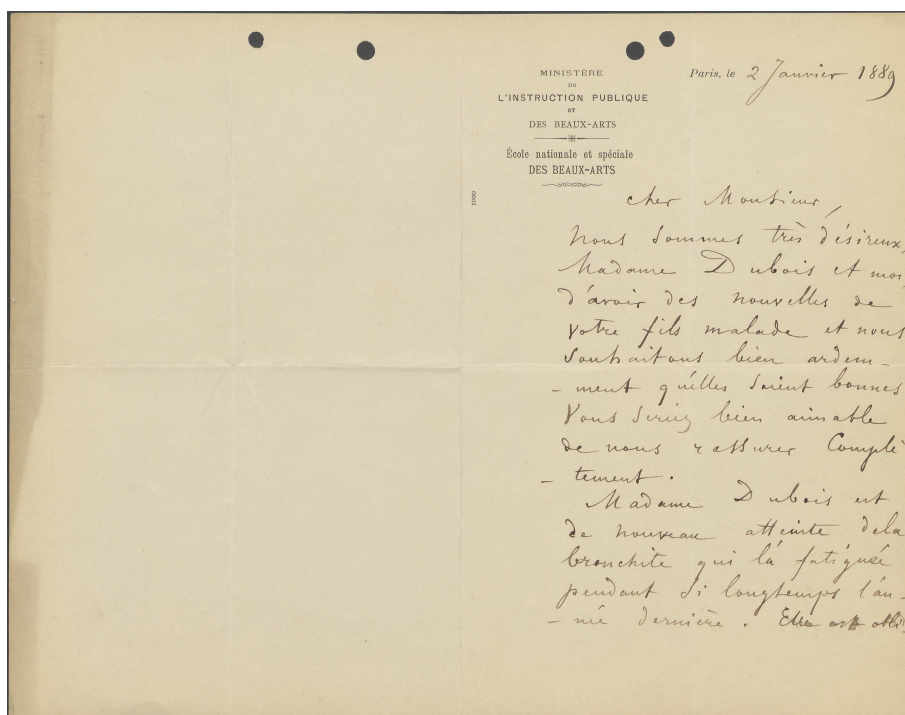 MINISTÈRE
DE
L'INSTRUCTION PUBLIQUE
ET
DES BEAUX-ARTS
École nationale et spéciale
DES BEAUX-ARTS
Paris, le 2 Janvier 1889
0001
Cher Monsieur,
Nous sommes très désireux,
Madame Dubois et moi,
d'avoir des nouvelles de
votre fils malade et nous
souhaitons bien ardem-
-ment qu'elles soient bonnes
Vous seriez bien aimable
de nous rassurer complè
-tement.
Madame Dubois est
de nouveau atteinte dela
bronchite qui l'a fatiguée
pendant si longtemps l'an-
-née dernière. Elle est obli